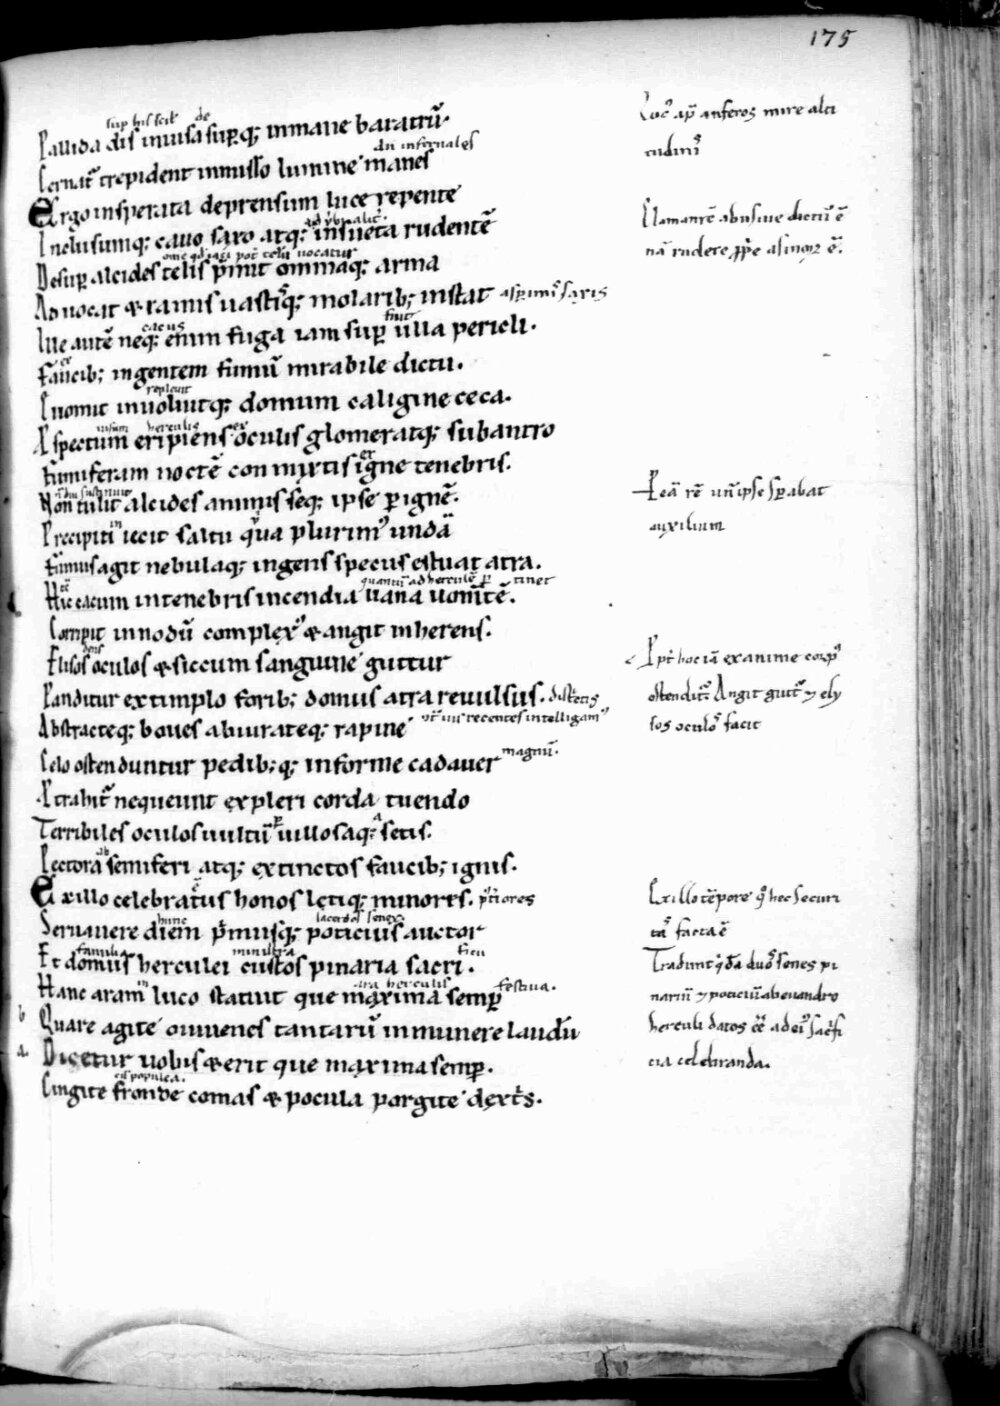 175
sup his scił de
Pallida dis inuisa suꝑq; inmane baratrū·
dii infernales
Cernat᷑ trepident inmisso lumine manes
Ergo insperata deprensum luce repente
Inclusumq; cauo saxo atq; insueta rudentē
Desuꝑ alcides telis p̄mit omniaq; arma
Aduocat & ramis uastisq; molarib; instat asꝑimis saxis
cacus fuit
Ille autē neq; enim fuga iam suꝑ ulla pericli·
ex
Faucib; ingentem fumū mirabile dictu·
repleuit
Euomit inuoluitq; domum caligine ceca·
uisum herculis ex
Aspectum eripiens oculis glomeratq; sub antro
ex
Fumiferam noctē conmixtis igne tenebris·
Non tulit alcides animis seq; ipse ꝑ ignē·
in
Precipiti iecit saltu qua plurim᷒ undā
Fumus agit nebulaq; ingens specus estuat atra·
quantū ad herculē ꝑtinet
Hic cacum intenebris incendia uana uomētē·
Corripit innodū complex᷒ & angit inherens·
dens
Elisos oculos & siccum sanguine guttur
Panditur extimplo forib; domus atra reuulsis· distētis
Abstracteq; boues abiurateq; rapine ut᷑ uis recentes intelligam᷒
Celo ostenduntur pedib;q; informe cadauer magnū·
Protrahit᷑ nequeunt expleri corda tuendo
Terribiles oculos uultū uillosaq; setis·
ab
Pectora semiferi atq; extinctos faucib; ignis·
Exillo celebratus honos letiq; minores· p̄tiores
hunc sacerdos senex·
Seruauere diem p̄musq; poticius auctor
familia ministra
Et domus herculei custos pinaria sacri·
in ara herculis
Hanc aram luco statuit que maxima semꝑ festiua·
b Quare agite o iuuenes tantarū in munere laudū
a· Dicetur uobis & erit que maxima semꝑ·
ex populea·
Cingite fronde comas & pocula porgite dext᷑s·
Loc᷒ ap̄ inferos mire alti
tudinis
Clamantē abusiue dictū ē
nā rudere p̄pe asinoꝝ ē·
Eā rē un᷒ ipse sꝑabat
auxilium
Ipt̄ hoc iā exanime corp᷒
ostendit᷑ Angit gutt᷑ ⁊ ely
sos oculos facit
Exillo tēpore q᷒ hec securi
tas facta ē
Tradunt q᷒da duos senes pi
nariū ⁊ poticiū ab euandro
herculi datos ēē ad ei᷒ sac᷑fi
cia celebranda·